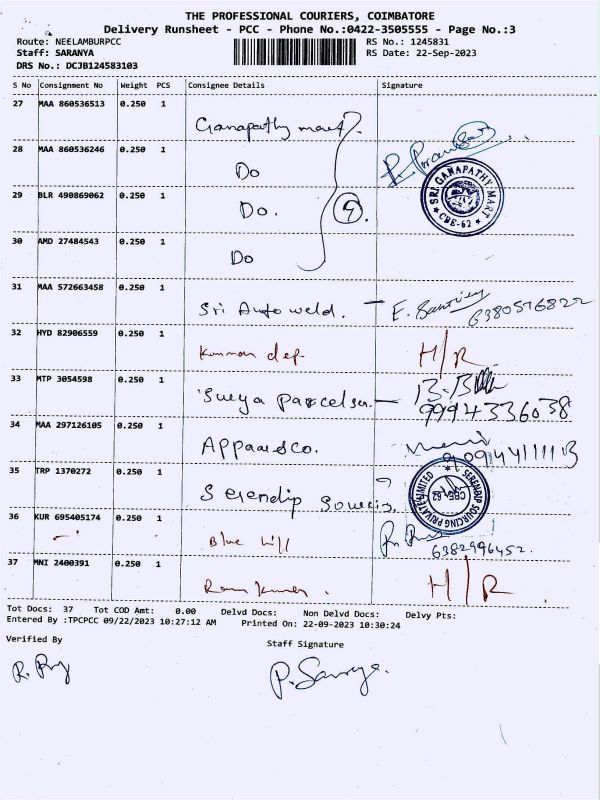 THE PROFESSIONAL COURIERS, COIMBATORE
Delivery Runsheet - PCC - Phone No.:0422-3505555 - Page No.:3
Route: NEELAMBURPCC RS No.: 1245831
Staff: SARANYA RS Date: 22-Sep-2023
DRS No.: DCJB124583103
S No Consignment No Weight PCS Consignee Details Signature
27 MAA 860536513 0.250 1
Ganapathy mart
28 MAA 860536246 0.250 1
Do
29 BLR 490869062 0.250 1
Do. 4.
SRI GANAPATHY MART
* CBE-62 *
30 AMD 27484543 0.250 1
Do
31 MAA 572663458 0.250 1
Sri Auto weld. - E. 6380576822
32 HYD 82906559 0.250 1
dep. H/R
33 MTP 3054598 0.250 1
Surya Parcel - 9994336038
34 MAA 297126105 0.250 1
35 TRP 1370272 0.250 1
Serendip
SERENDIP SOURCING PRIVATE LIMITED
CBE-62
36 KUR 695405174 0.250 1
Blue hill 6382996452.
37 MNI 2400391 0.250 1
Ram Kumar. H/R
Tot Docs: 37 Tot COD Amt: 0.00 Delvd Docs: Non Delvd Docs: Delvy Pts:
Entered By :TPCPCC 09/22/2023 10:27:12 AM Printed On: 22-09-2023 10:30:24
Verified By Staff Signature